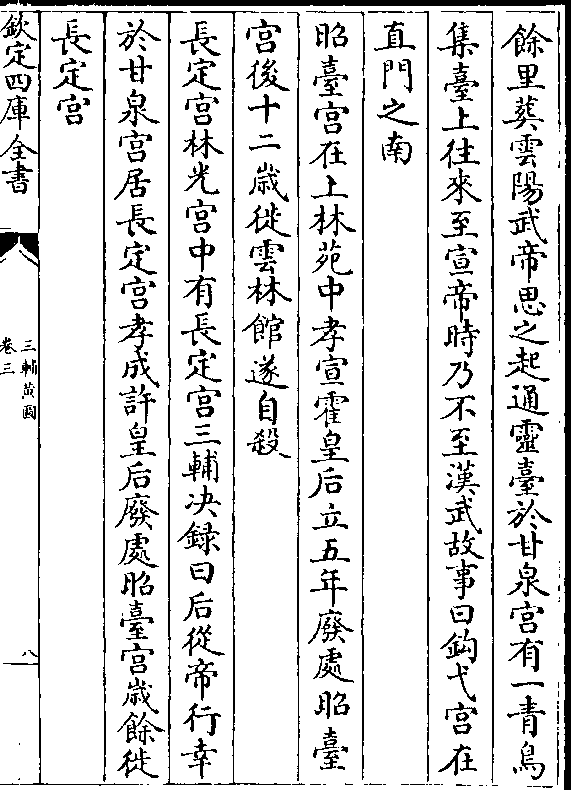 餘里葬雲陽武帝思之起通靈臺於甘泉宮有一青鳥
集臺上往來至宣帝時乃不至漢武故事曰鈎弋宮在
直門之南
昭臺宮在上林苑中孝宣霍皇后立五年廢處昭臺
宮後十二歲徙雲林館遂自殺
長定宮林光宮中有長定宮三輔决録曰后從帝行幸
於甘泉宮居長定宮孝成許皇后廢處昭臺宮歲餘徙
長定宮
欽定四庫全書
三輔黃圖
卷三
八